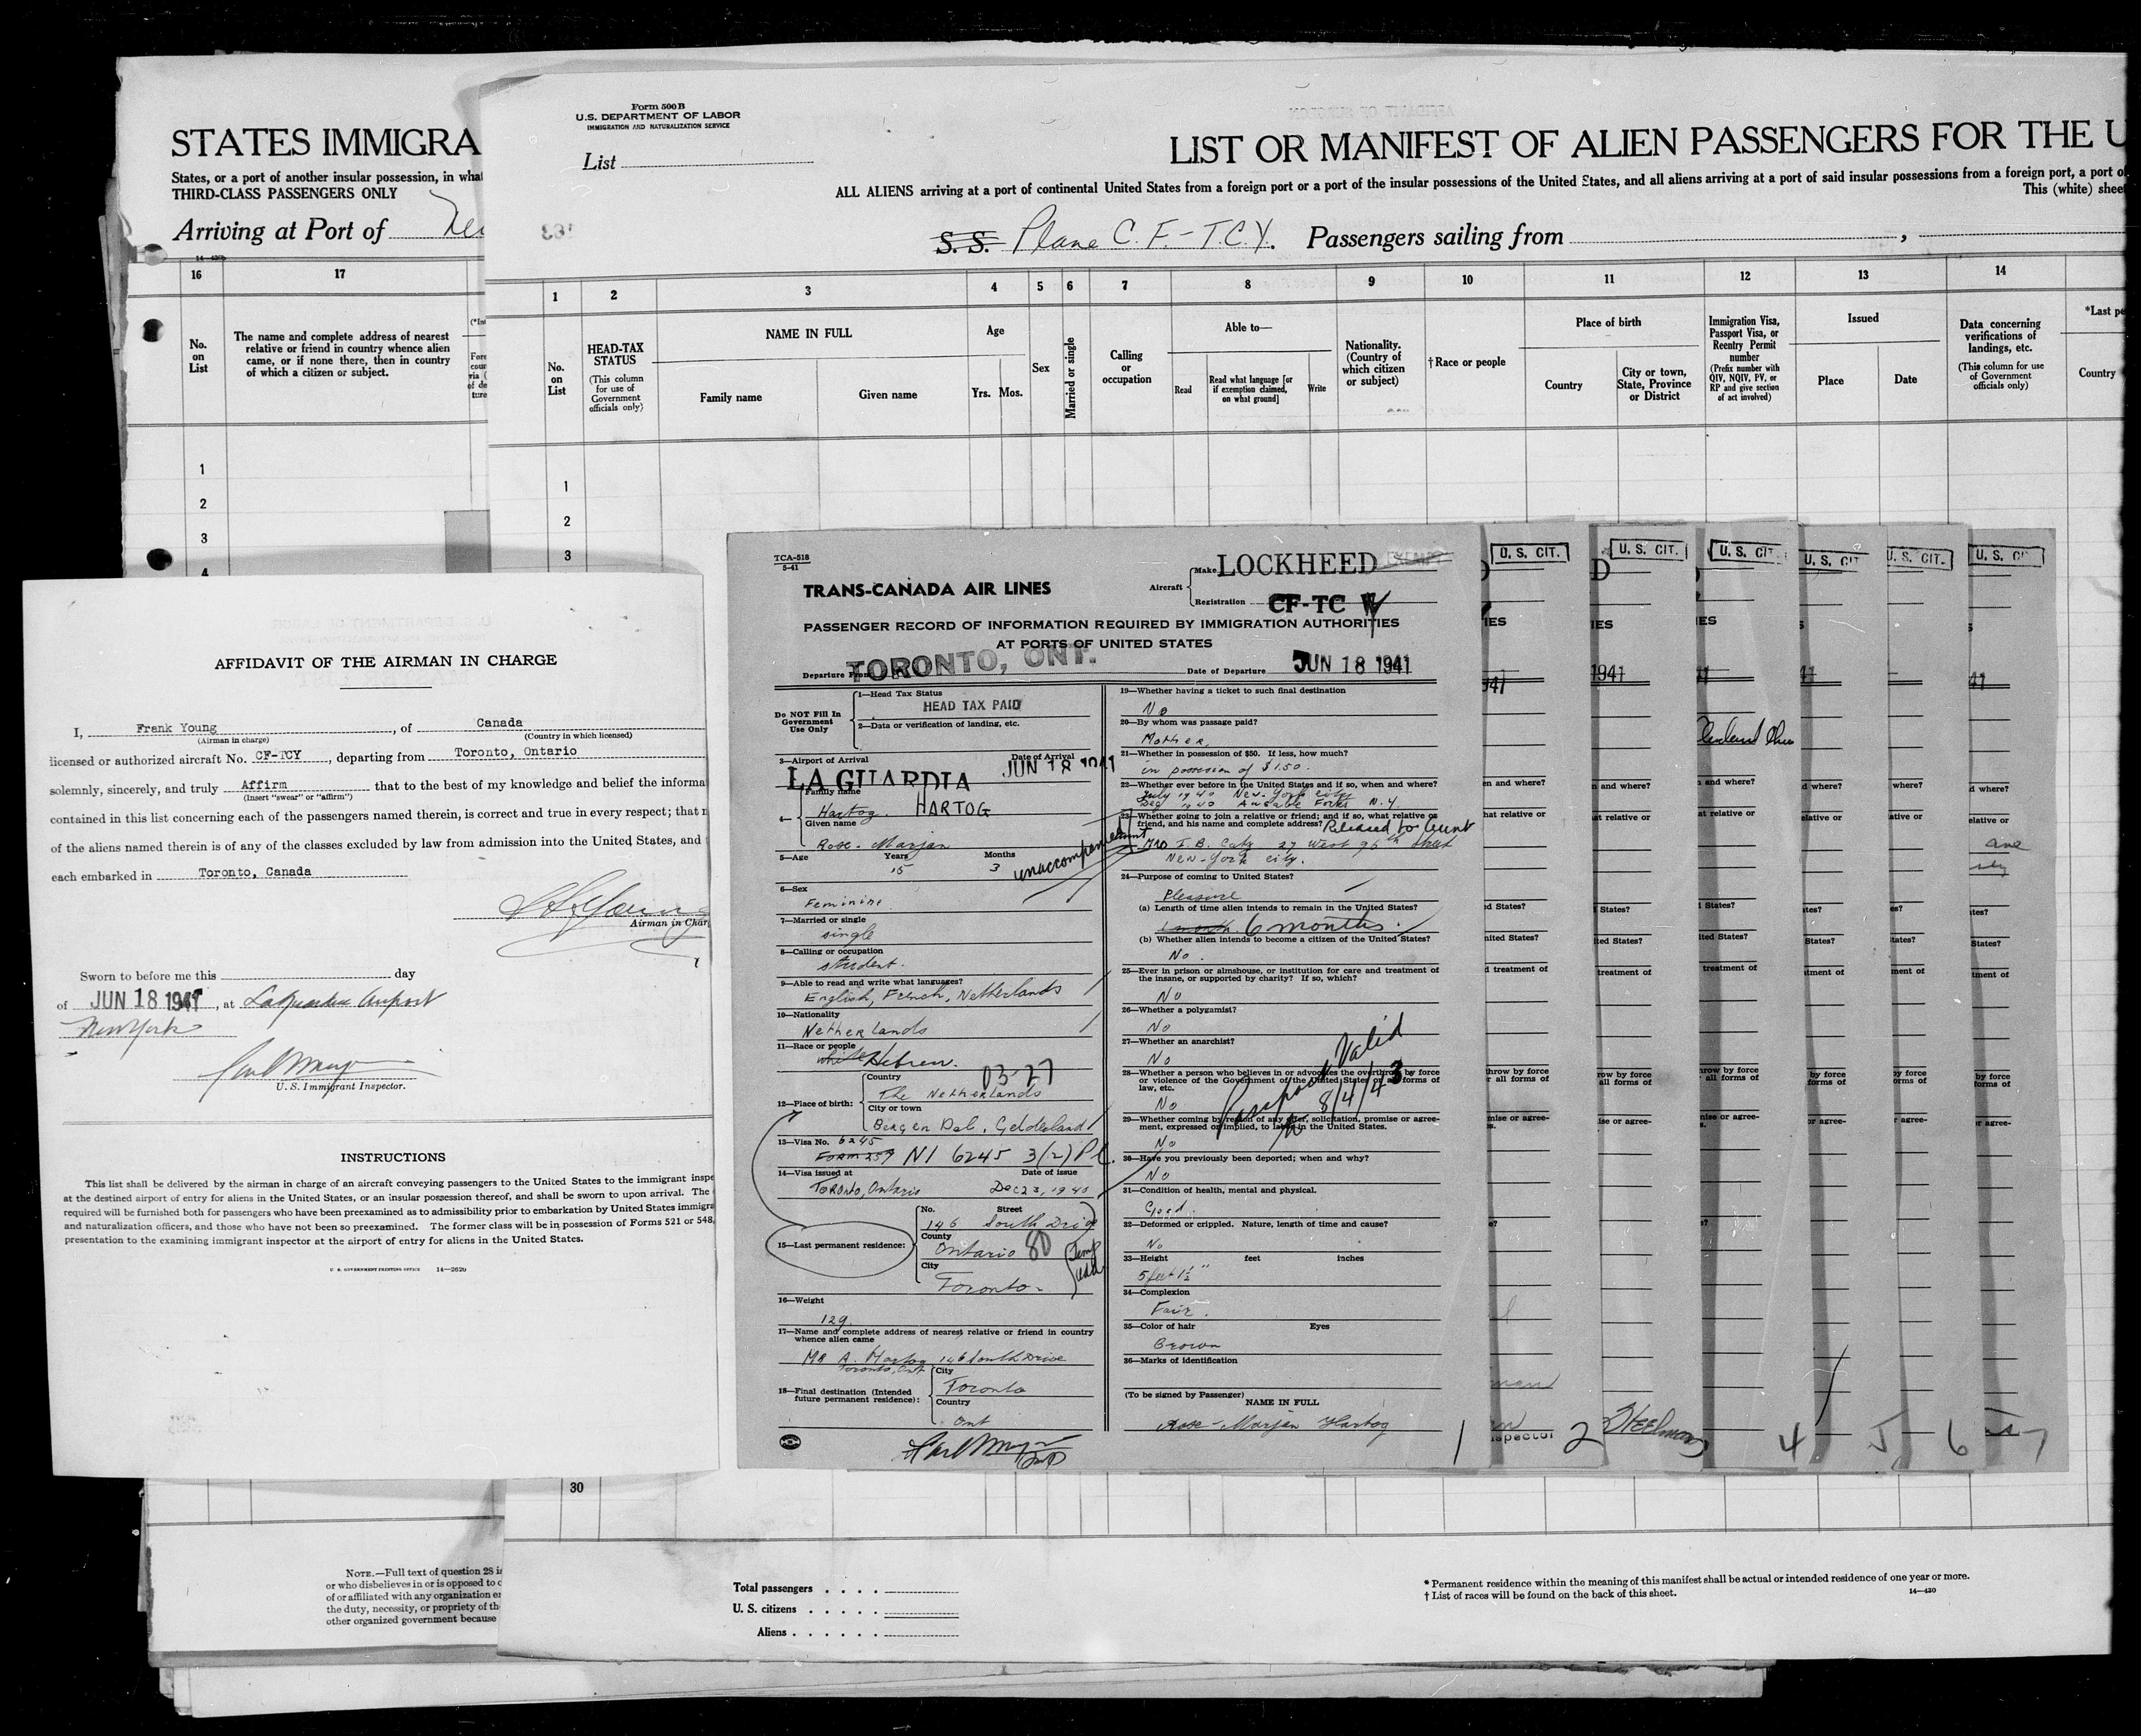 STATES IMMIGRA
States, or a port of another insular possession, in what
THIRD-CLASS PASSENGERS ONLY
Arriving at Port of
16 17
No. on List
The name and complete address of nearest
relative or friend in country whence alien
came, or if none there, then in country
of which a citizen or subject.
1
2
3
4
Form 500 B
U.S. DEPARTMENT OF LABOR
IMMIGRATION AND NATURALIZATION SERVICE
List
LIST OR MANIFEST OF ALIEN PASSENGERS FOR THE U
ALL ALIENS arriving at a port of continental United States from a foreign port or a port of the insular possessions of the United States, and all aliens arriving at a port of said insular possessions from a foreign port, a port o
This (white) sheet
S. S. Plane C. F.-T.C.Y. Passengers sailing from
1 2 3 4 5 6 7 8 9 10 11 12 13 14
No. on List
HEAD-TAX STATUS
(This column for use of Government officials only)
NAME IN FULL
Family name Given name
Age
Yrs. Mos.
Sex
Married or single
Calling or occupation
Able to—
Read
Read what language [or if exemption claimed, on what ground]
Write
Nationality. (Country of which citizen or subject)
†Race or people
Place of birth
Country
City or town, State, Province or District
Immigration Visa, Passport Visa, or Reentry Permit number
(Prefix number with QIV, NQIV, PV, or RP and give section of act involved)
Issued
Place Date
Data concerning verifications of landings, etc.
(This column for use of Government officials only)
*Last pe
Country
1
2
3
AFFIDAVIT OF THE AIRMAN IN CHARGE
I, Frank Young, of Canada
(Airman in charge) (Country in which licensed)
licensed or authorized aircraft No. CF-TCY, departing from Toronto, Ontario
solemnly, sincerely, and truly Affirm that to the best of my knowledge and belief the informa
(Insert "swear" or "affirm")
contained in this list concerning each of the passengers named therein, is correct and true in every respect; that n
of the aliens named therein is of any of the classes excluded by law from admission into the United States, and
each embarked in Toronto, Canada
Airman in Char
Sworn to before me this day
of JUN 18 1941, at LaGuardia Airport
New York
U. S. Immigrant Inspector.
INSTRUCTIONS
This list shall be delivered by the airman in charge of an aircraft conveying passengers to the United States to the immigrant inspe
at the destined airport of entry for aliens in the United States, or an insular possession thereof, and shall be sworn to upon arrival. The
required will be furnished both for passengers who have been preexamined as to admissibility prior to embarkation by United States immigra
and naturalization officers, and those who have not been so preexamined. The former class will be in possession of Forms 521 or 548,
presentation to the examining immigrant inspector at the airport of entry for aliens in the United States.
U. S. GOVERNMENT PRINTING OFFICE 14—2629
TCA-518
5-41
TRANS-CANADA AIR LINES
Aircraft
Make LOCKHEED
Registration CF-TC Y
EXEMPT
PASSENGER RECORD OF INFORMATION REQUIRED BY IMMIGRATION AUTHORITIES
AT PORTS OF UNITED STATES
Departure From TORONTO, ONT. Date of Departure JUN 18 1941
Do NOT Fill In Government Use Only
1—Head Tax Status
HEAD TAX PAID
2—Data or verification of landing, etc.
3—Airport of Arrival Date of Arrival
LA GUARDIA JUN 18 1941
4—
Family name
Hartog. HARTOG
Given name
Rose - Marjan
5—Age Years Months
15 3
unaccompanied
6—Sex
Feminine
7—Married or single
single
8—Calling or occupation
student.
9—Able to read and write what languages?
English, French, Netherlands
10—Nationality
Netherlands
11—Race or people
white Hebrew.
12—Place of birth:
Country 03-27
The Netherlands
City or town
Bergen Dal, Gelderland
13—Visa No. 6245
Form 257 NI 6245 3(2) P.C.
14—Visa issued at Date of issue
Toronto, Ontario Dec 23, 1940
15—Last permanent residence:
No. Street
146 South Drive
County
Ontario 80
City
Toronto
16—Weight
129
17—Name and complete address of nearest relative or friend in country
whence alien came
Mr A. Hartog 146 South Drive
Toronto, Ont
18—Final destination (Intended
future permanent residence):
City
Toronto
Country
Ont
19—Whether having a ticket to such final destination
No
20—By whom was passage paid?
Mother,
21—Whether in possession of $50. If less, how much?
in possession of $150.
22—Whether ever before in the United States and if so, when and where?
July 1940 New-York City
Dec 1940 Ausable Forks N.Y.
23—Whether going to join a relative or friend; and if so, what relative or
friend, and his name and complete address? Released to Aunt
aunt
Mrs I. B. Catz 27 West 96th Street
New-York City.
24—Purpose of coming to United States?
Pleasure
(a) Length of time alien intends to remain in the United States?
1 month 6 months.
(b) Whether alien intends to become a citizen of the United States?
No.
25—Ever in prison or almshouse, or institution for care and treatment of
the insane, or supported by charity? If so, which?
No
26—Whether a polygamist?
No
27—Whether an anarchist?
No
28—Whether a person who believes in or advocates the overthrow by force
or violence of the Government of the United States or all forms of
law, etc.
No
Passport Valid
to 8/4/43
29—Whether coming by reason of any offer, solicitation, promise or agree-
ment, expressed or implied, to labor in the United States.
No
30—Have you previously been deported; when and why?
No
31—Condition of health, mental and physical.
Good.
32—Deformed or crippled. Nature, length of time and cause?
No
33—Height feet inches
5 feet 1½"
34—Complexion
Fair.
35—Color of hair Eyes
Brown
36—Marks of identification
(To be signed by Passenger)
NAME IN FULL
Rose-Marjan Hartog
1 2 4 5 6 7
U. S. CIT.
U. S. CIT.
U. S. CIT.
U. S. CIT
U. S. CIT.
U. S. CI
30
NOTE.—Full text of question 28 is
or who disbelieves in or is opposed to o
of or affiliated with any organization en
the duty, necessity, or propriety of th
other organized government because
Total passengers . . . .
U. S. citizens . . . . .
Aliens . . . . . .
* Permanent residence within the meaning of this manifest shall be actual or intended residence of one year or more.
† List of races will be found on the back of this sheet. 14—430